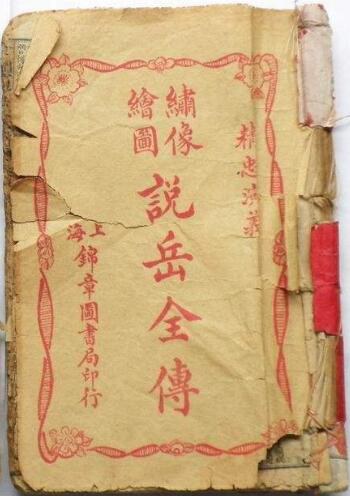 精忠演義
繡像
繪圖
說岳全傳
上海
錦章圖書局印行